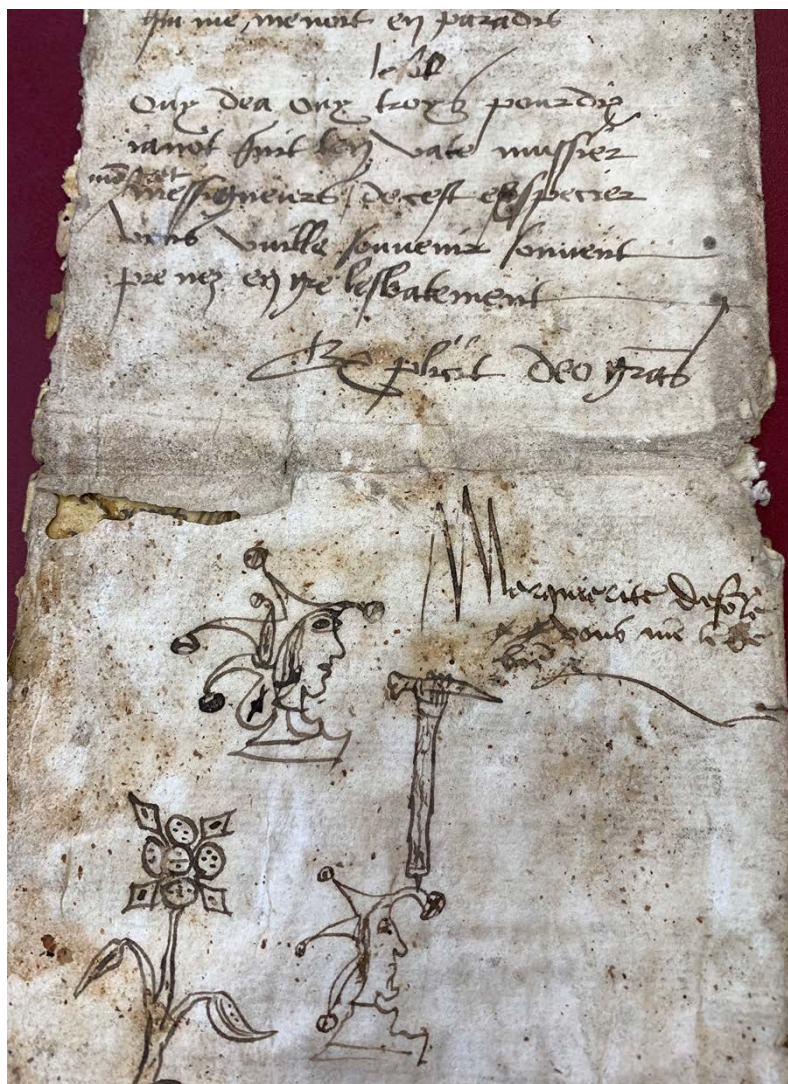 qui me menoit en paradis
le sol
Ouy dea ouy troys pour dix
ianot suit len vate mussier
messigneurs de cest espicier
Vous vuille souvenir souvent
prenez en gre lesbatement
Explicit deo gras
Marguerite
vous me